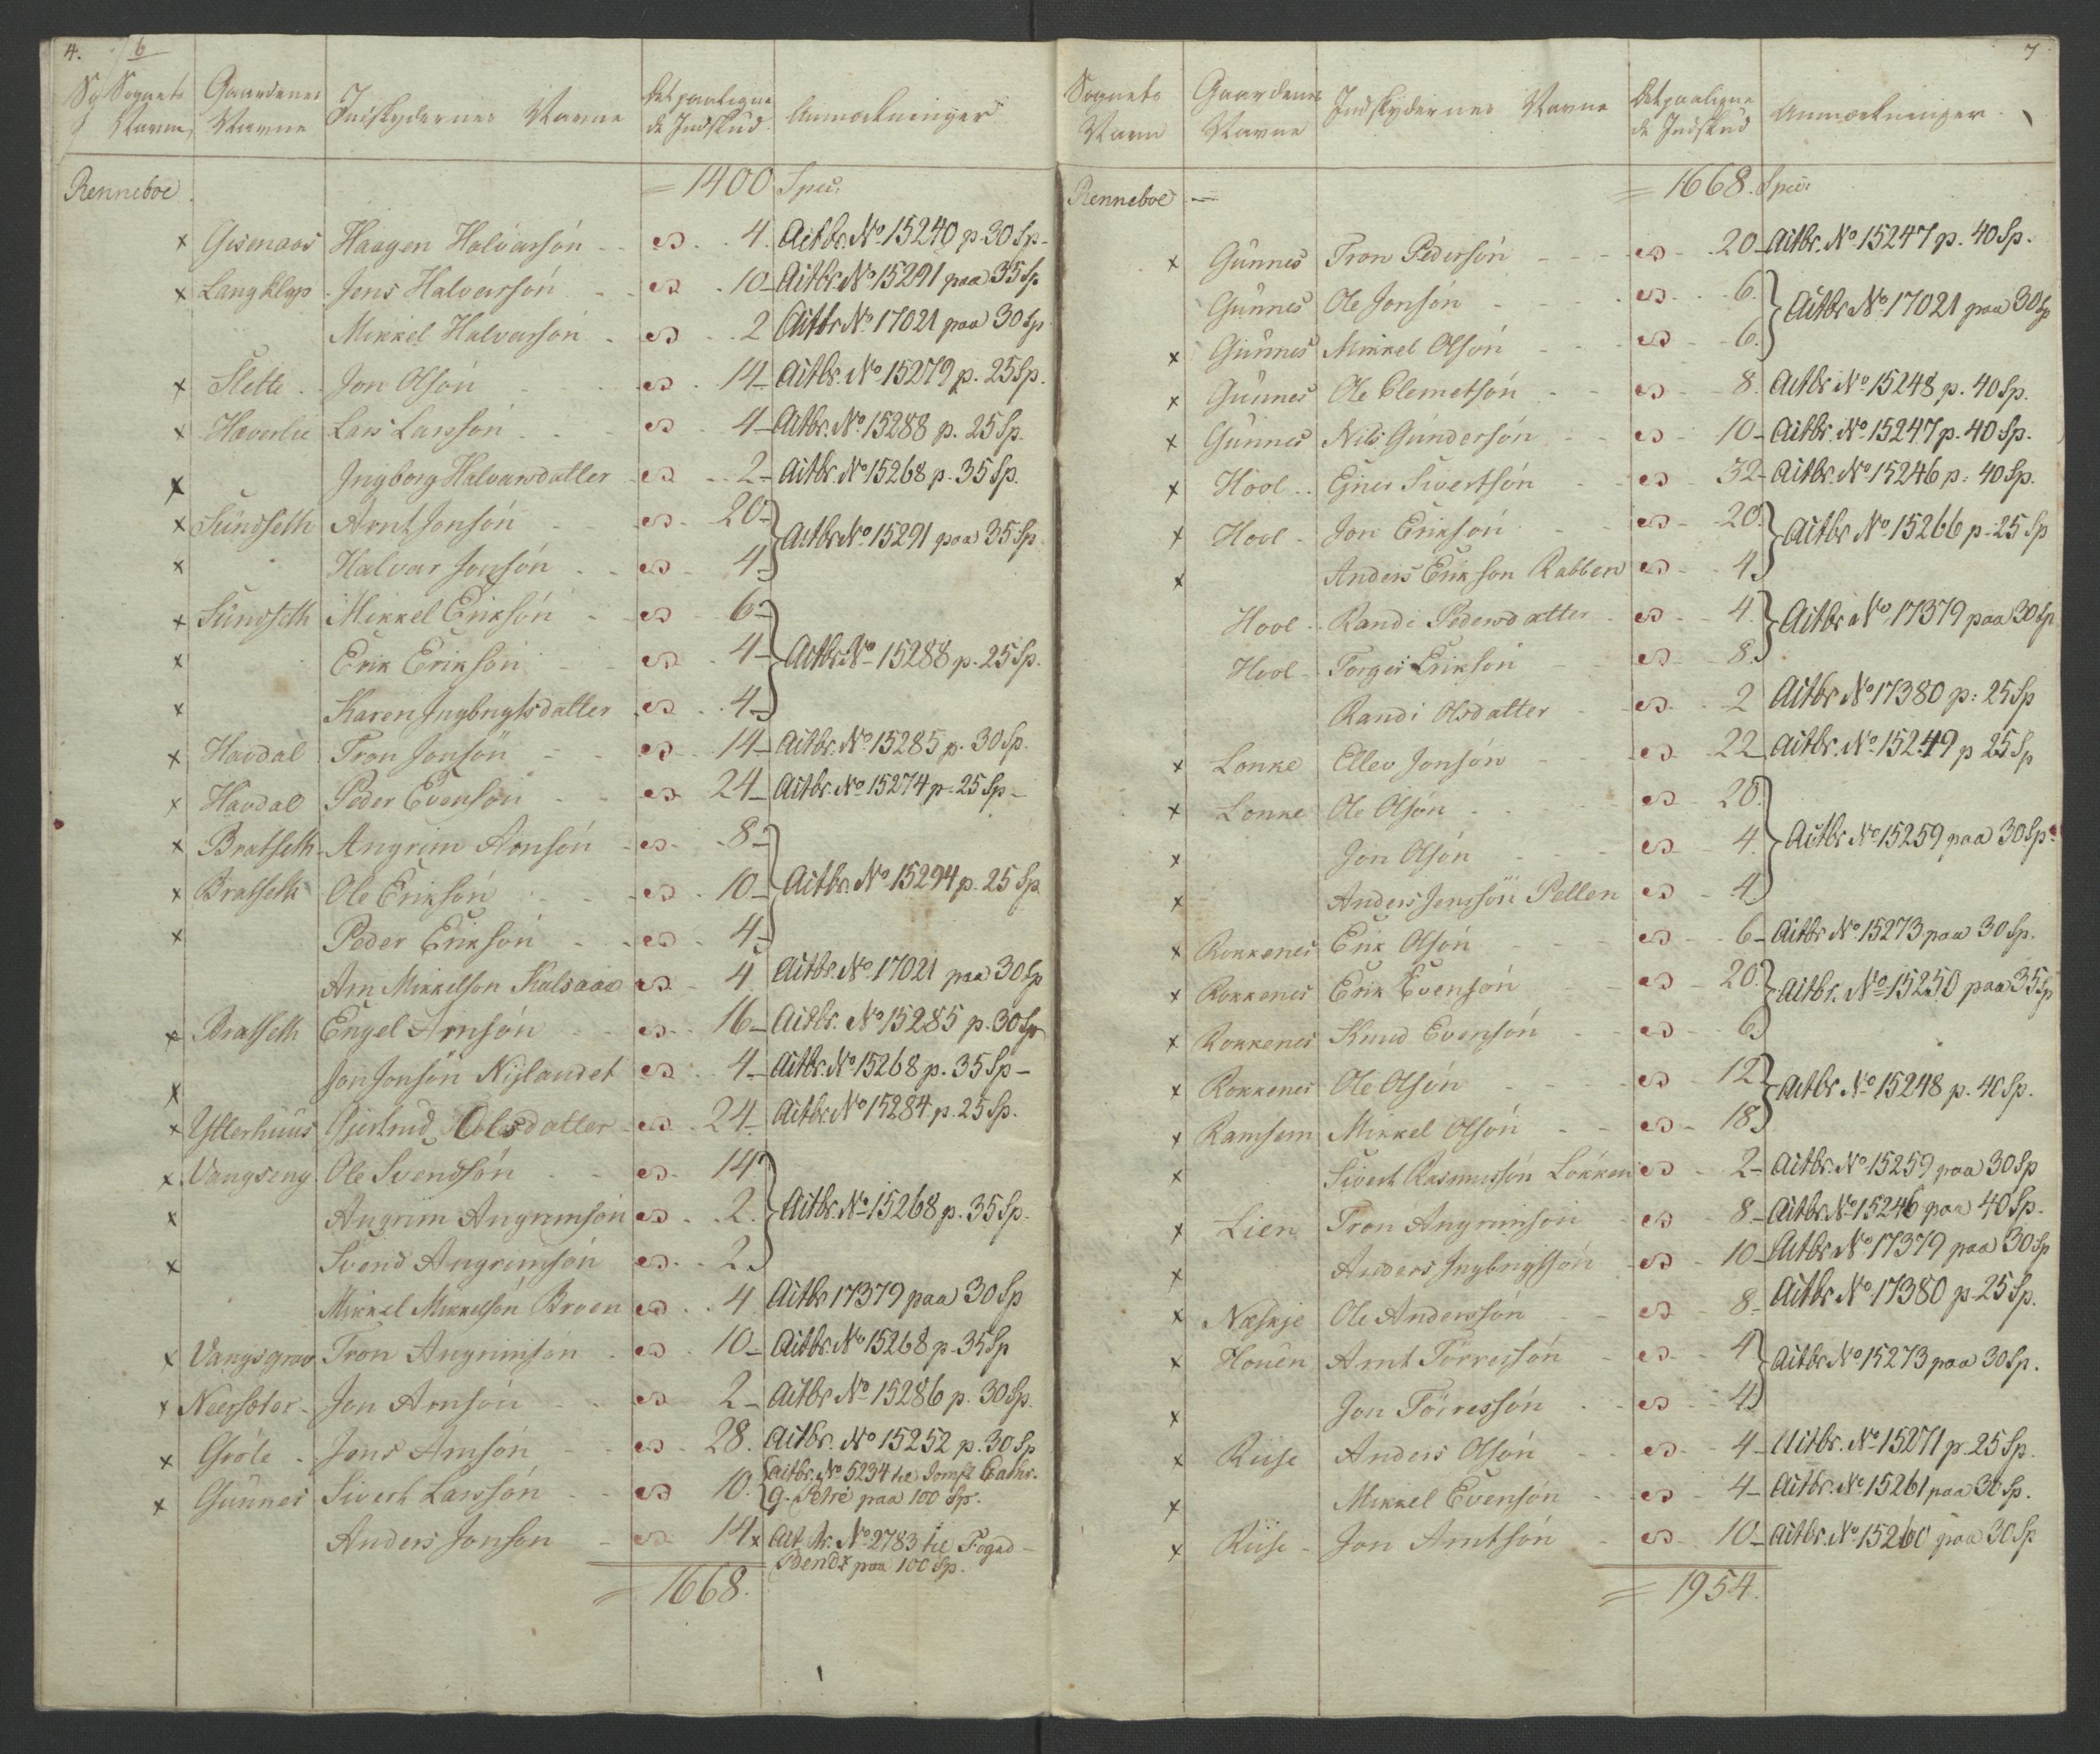 4. 6
Sognets Navn Gaardenes Navne Indskydernes Navne Det paaligne de Indskud Anmærkninger
Renneboe = 1400 Spec:
x Gisenaas Haagen Halvarsón - 4. Actbr. No 15240 p. 30 Sp -
x Langklop Jens Halvarsón - 10 - Actbr. No 15291 paa 35 Sp
Mikkel Halvarsón - 2 Actbr No 17021 paa 30 Sp
x Slette Jon Olsón - 14 - Actbr. No 15279 p. 25 Sp.
x Hæverlie Lars Larssón - 4 - Actbr. No 15288 p. 25 Sp.
x Ingborg Halvarsdatter - 2 - Actbr. No 15268 p. 35 Sp.
x Sundseth Arnt Jonsón - 20 - } Actbr No 15291 paa 35 Sp
x Halvar Jonsón - 4 -
x Sundseth Mikkel Eriksón - 6 - } Actbr. No 15288 p. 25 Sp.
x Erik Eriksón - 4 -
x Karen Ingbrigtsdatter - 4 -
x Havdal Tron Jonsön - 14 - Actbr. No 15285 p. 30 Sp.
x Havdal Peder Evensón - 24 - Actbr. No 15274 p. 25 Sp -
x Bratseth Angrim Arnsón - 8 - } Actbr. No 15294 p. 25 Sp
x Bratseth Ole Eriksón - 10 -
x Peder Eriksón - 4 -
Arn Mikkelson Kalsaae - 4 Actbr. No 17021 paa 30 Sp
x Bratseth Engel Arnsón - 16 - Actbr. No 15285 p. 30 Sp
x Jon Jonsön Nylandet - 4 - Actbr. No 15268 p. 35 Sp -
x Ytterhuus Gjertrud Olsdatter - 24 - Actbr. No 15284 p. 25 Sp.
x Vangseng Ole Svendsón - 14 } Actbr. No 15268 p. 35 Sp.
x Angrim Angrimsón - 2.
x Svend Angrimsón - 2.
Mikkel Mikkelsón Broen - 4 Actbr 17379 paa 30 Sp
x Vangsgrav Tron Angrimsón - 10 - Actbr. No 15268 p. 35 Sp
x Neersæter Jon Arnsón - 2 - Actbr No 15286 p. 30 Sp.
x Gröte Jens Arnsón - 28. Actbr. No 15252 p. 30 Sp
x Gunnes Sivert Larssón - 10. { Actbr. No 5234 til Jomfr Cathr. G. Petré paa 100 Sp.
Anders Jonsón - 14 x Act br. No 2783 til Fogd - Bendz paa 100 Sp.
= 1668.
7
Sognets Navn Gaardenes Navne Indskydernes Navne Det paaligne de Indskud Anmærkninger.
Renneboe - = 1668. Spec:
x Gunnes Tron Pedersón - 20 - Actbr. No 15247 p. 40 Sp.
Gunnes Ole Jonsón - 6. } Actbr No 17021 paa 30 Sp
x Gunnes Mikkel Olsón - 6.
x Gunnes Ole Clemetsón - 8. Actbr No 15248 p. 40 Sp.
x Gunnes Nils Gundersón - 10 - Actbr. No 15247 p. 40 Sp.
x Hool Ejner Sivertsón - 32 - Actbr. No 15246 p. 40 Sp.
x Hool Jon Eriksón - 20. } Actbr No 15266 p. 25 Sp
x Anders Erikson Rabben - 4
Hool Randi Pedersdatter - 4. } Actbr No 17379 paa 30 Sp
Hool Torger Eriksón - 8.
Randi Olsdatter - 2 Actbr No 17380 p. 25 Sp
x Lonke Ellev Jonsón - 22 - Actbr. No 15249 p 25 Sp
x Lonke Ole Olsón - 20. } Actbr No 15259 paa 30 Sp.
x Jon Olsón - 4.
x Anders Jensön Pellen - 4
x Rokkenes Erik Olsón - 6 - Actbr No 15273 paa 30 Sp.
x Rokkenes Erik Evensón - 20. } Actbr. No 15250 paa 35 Sp
x Rokkenes Knud Evensón - 6
x Rokkenes Ole Olsón - 12 } Actbr. No 15248 p. 40 Sp.
x Ramsem Mikkel Olsón - 18
x Sivert Rasmussón Lökken - 2 - Actbr. No 15259 paa 30 Sp
x Lien Tron Angrimsón - 8 - Actbr. No 15246 paa 40 Sp.
x Anders Ingbrigtsón - 10 - Actbr No 17379 paa 30 Sp
x Næskje Ole Anderssón - 8 - Actbr No 17380 p. 25 Sp.
x Houen Arnt Törressón - 4 } Actbr No 15273 paa 30 Sp.
x Jon Törressón - 4
x Riise Anders Olsón - 4 - Actbr. No 15271 p. 25 Sp.
x Mikkel Evensón - 4 - Actbr. No 15261 paa 30 Sp.
x Riise Jon Arntsón - 10 - Actbr. No 15260 paa 30 Sp
= 1954.